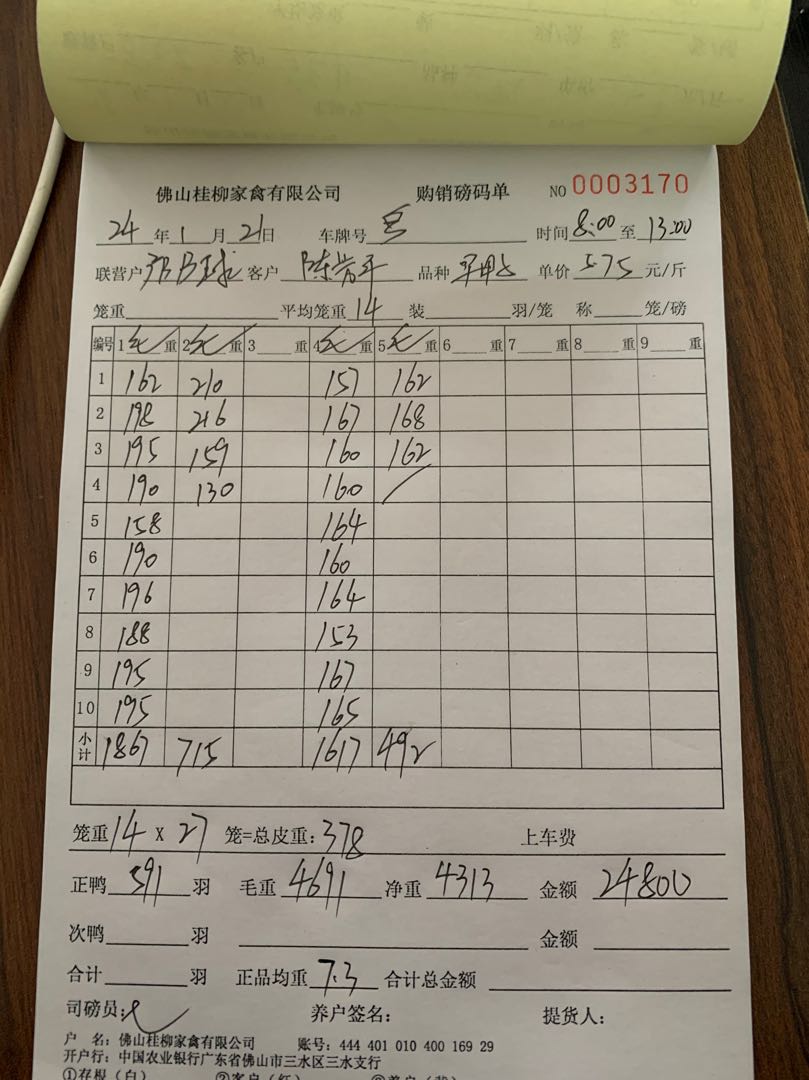 佛山桂柳家禽有限公司 购销磅码单 NO 0003170
24 年 1 月 21 日 车牌号 时间 8:00 至 13:00
联营户 客户 陈 品种 单价 5.75 元/斤
笼重 平均笼重 14 装 羽/笼 称 笼/磅
编号 1 毛 重 2 毛 重 3 重 4 毛 重 5 毛 重 6 重 7 重 8 重 9 重
1 162 210 157 162
2 198 216 167 168
3 195 159 160 162
4 190 130 160
5 158 164
6 190 160
7 196 164
8 188 153
9 195 167
10 195 165
小计 1867 715 1617 492
笼重 14 X 27 笼=总皮重: 378 上车费
正鸭 591 羽 毛重 4691 净重 4313 金额 24800
次鸭 羽 金额
合计 羽 正品均重 7.3 合计总金额
司磅员: 养户签名: 提货人:
户 名: 佛山桂柳家禽有限公司 账号: 444 401 010 400 169 29
开户行: 中国农业银行广东省佛山市三水区三水支行
①存根(白) ②客户(红) ③养户(黄)